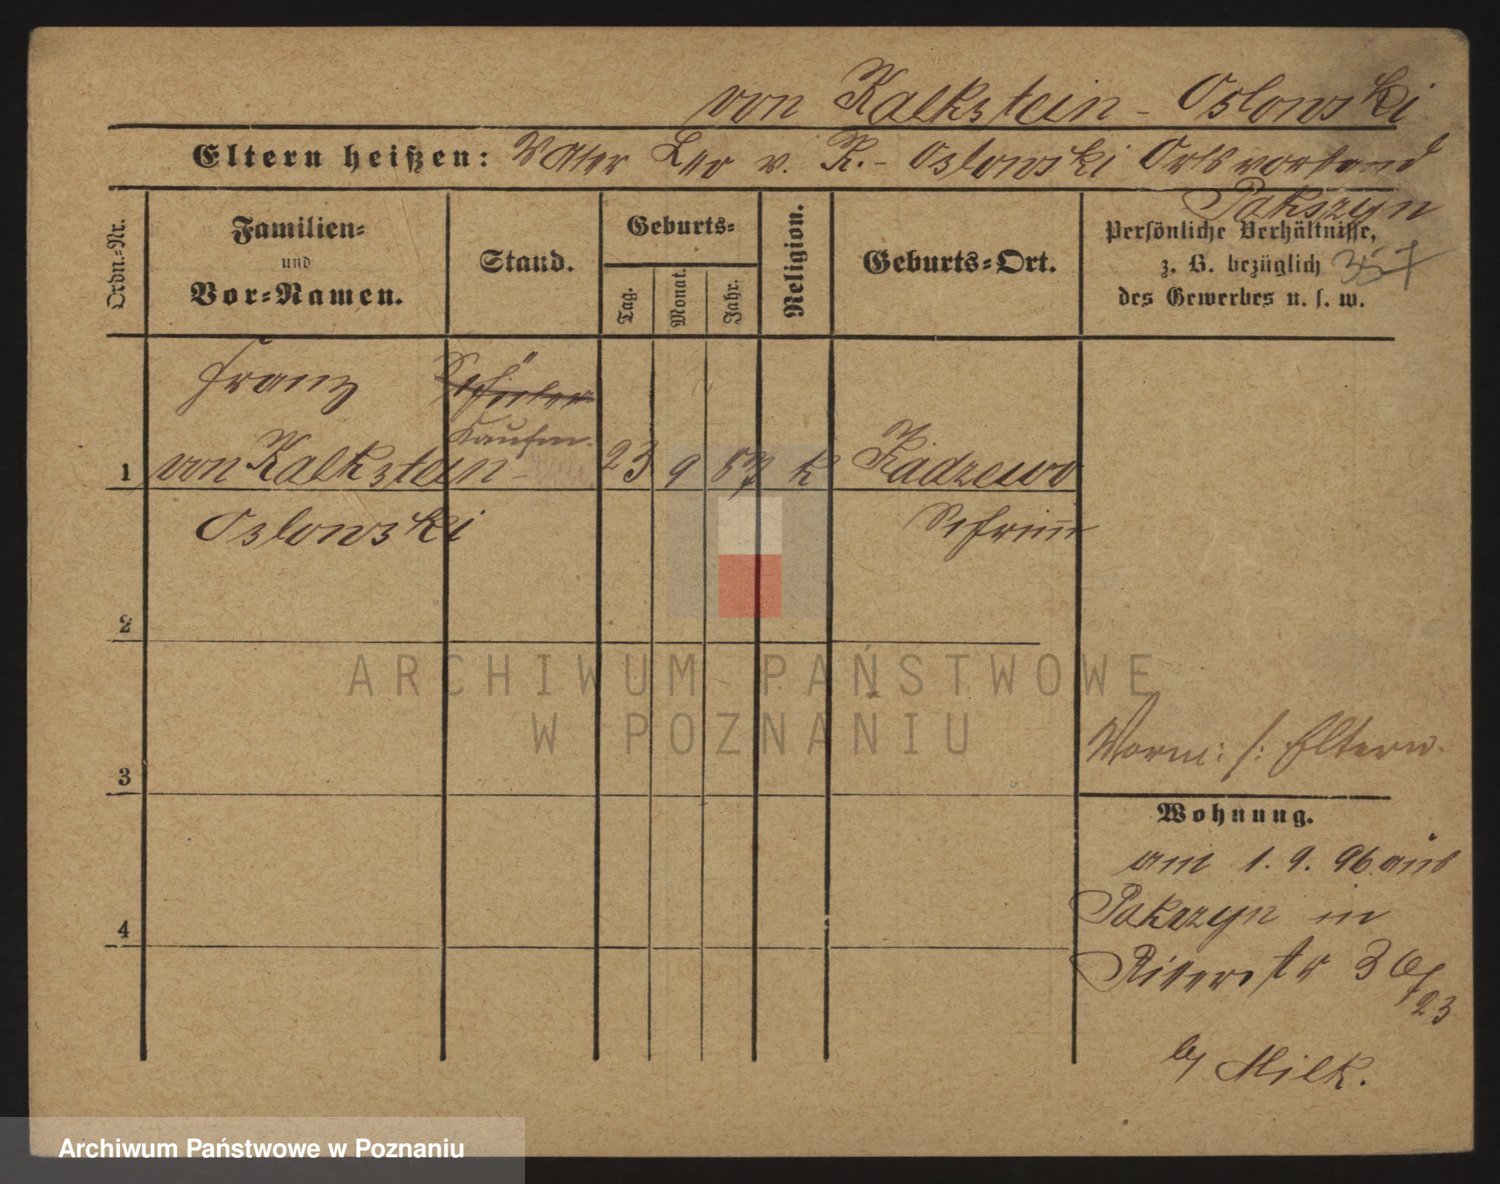 von Kalkstein - Oslowski
Eltern heißen: Vater Leo v. K. - Oslowski Ortsvorstand
Pakszyn
Ordn.-Nr.
Familien-
und
Vor-Namen.
Stand.
Geburts-
Tag.
Monat.
Jahr.
Religion.
Geburts-Ort.
Persönliche Verhältnisse,
z. B. bezüglich
des Gewerbes u. s. w.
357
Franz
Schüler
Kaufm.
1 von Kalkstein - 23 9 87 k Radzewo
Oslowski Schrimm
2
3
4
Vorm: s: Eltern.
Wohnung.
am 1. 9. 96 aus
Pakszyn in
Ritterstr 36
23
by Milk.
ARCHIWUM PAŃSTWOWE
W POZNANIU
Archiwum Państwowe w Poznaniu